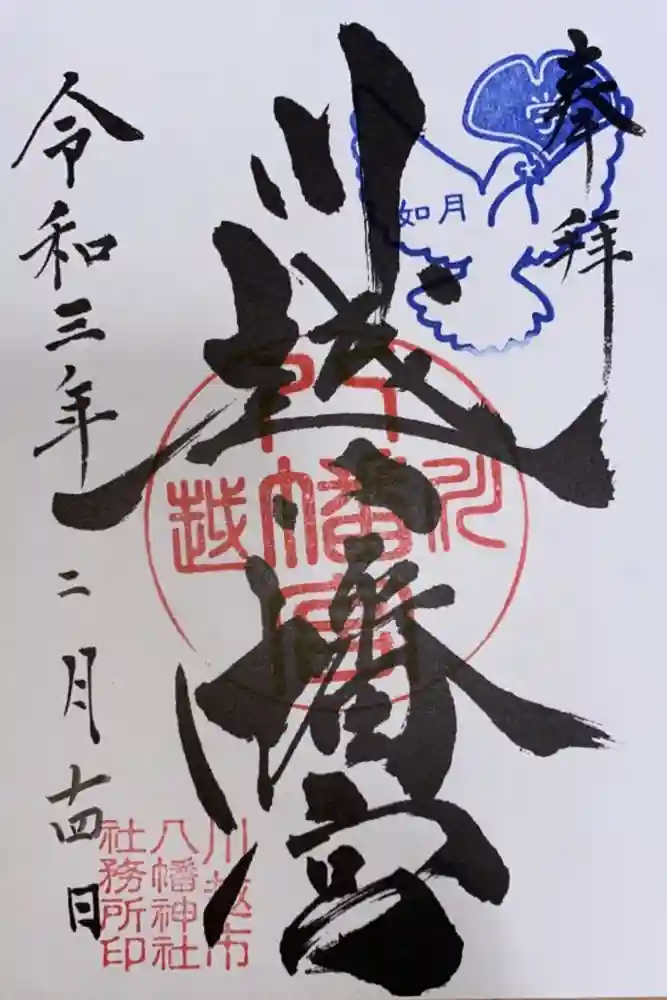 奉拝
如月
川越八幡宮
川
八幡宮
越
令和三年二月十四日
川越市
八幡神社
社務所印